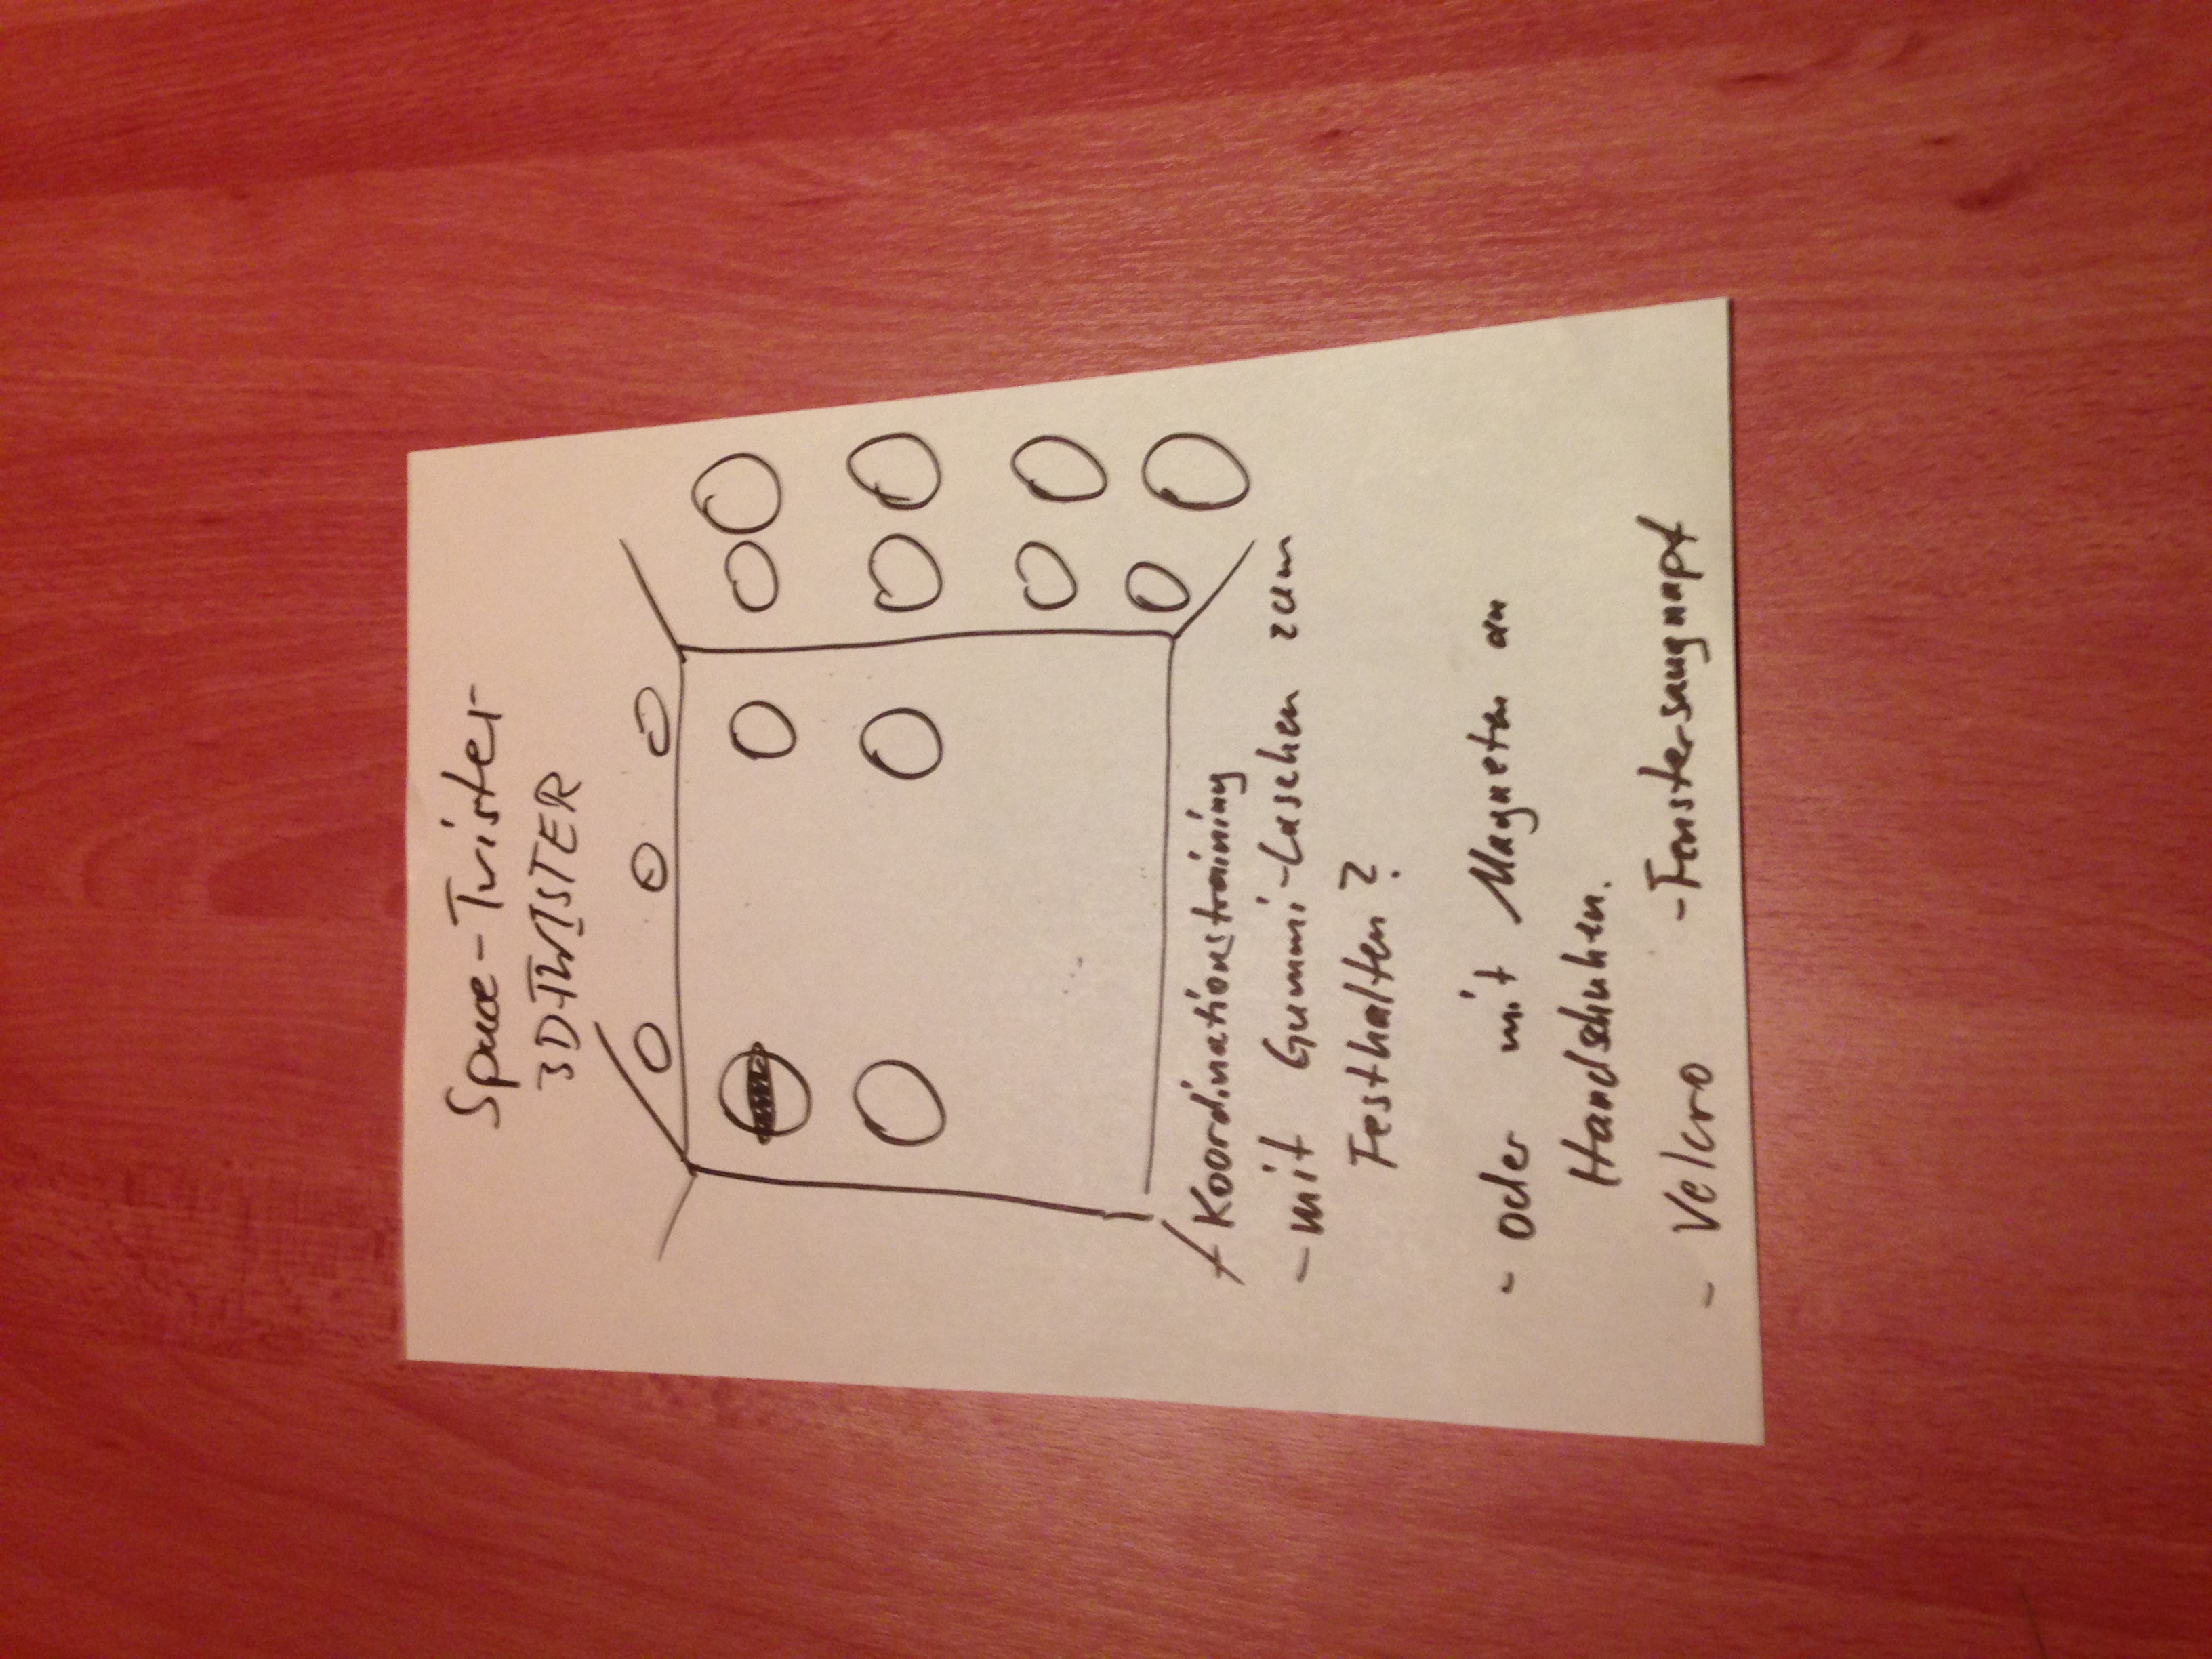 Space-Twister
3D-TWISTER
Koordinationstraining
- mit Gummi-Laschen zum
Festhalten?
- oder mit Magneten an
Handschuhen.
- Velcro - Fenstersaugnapf